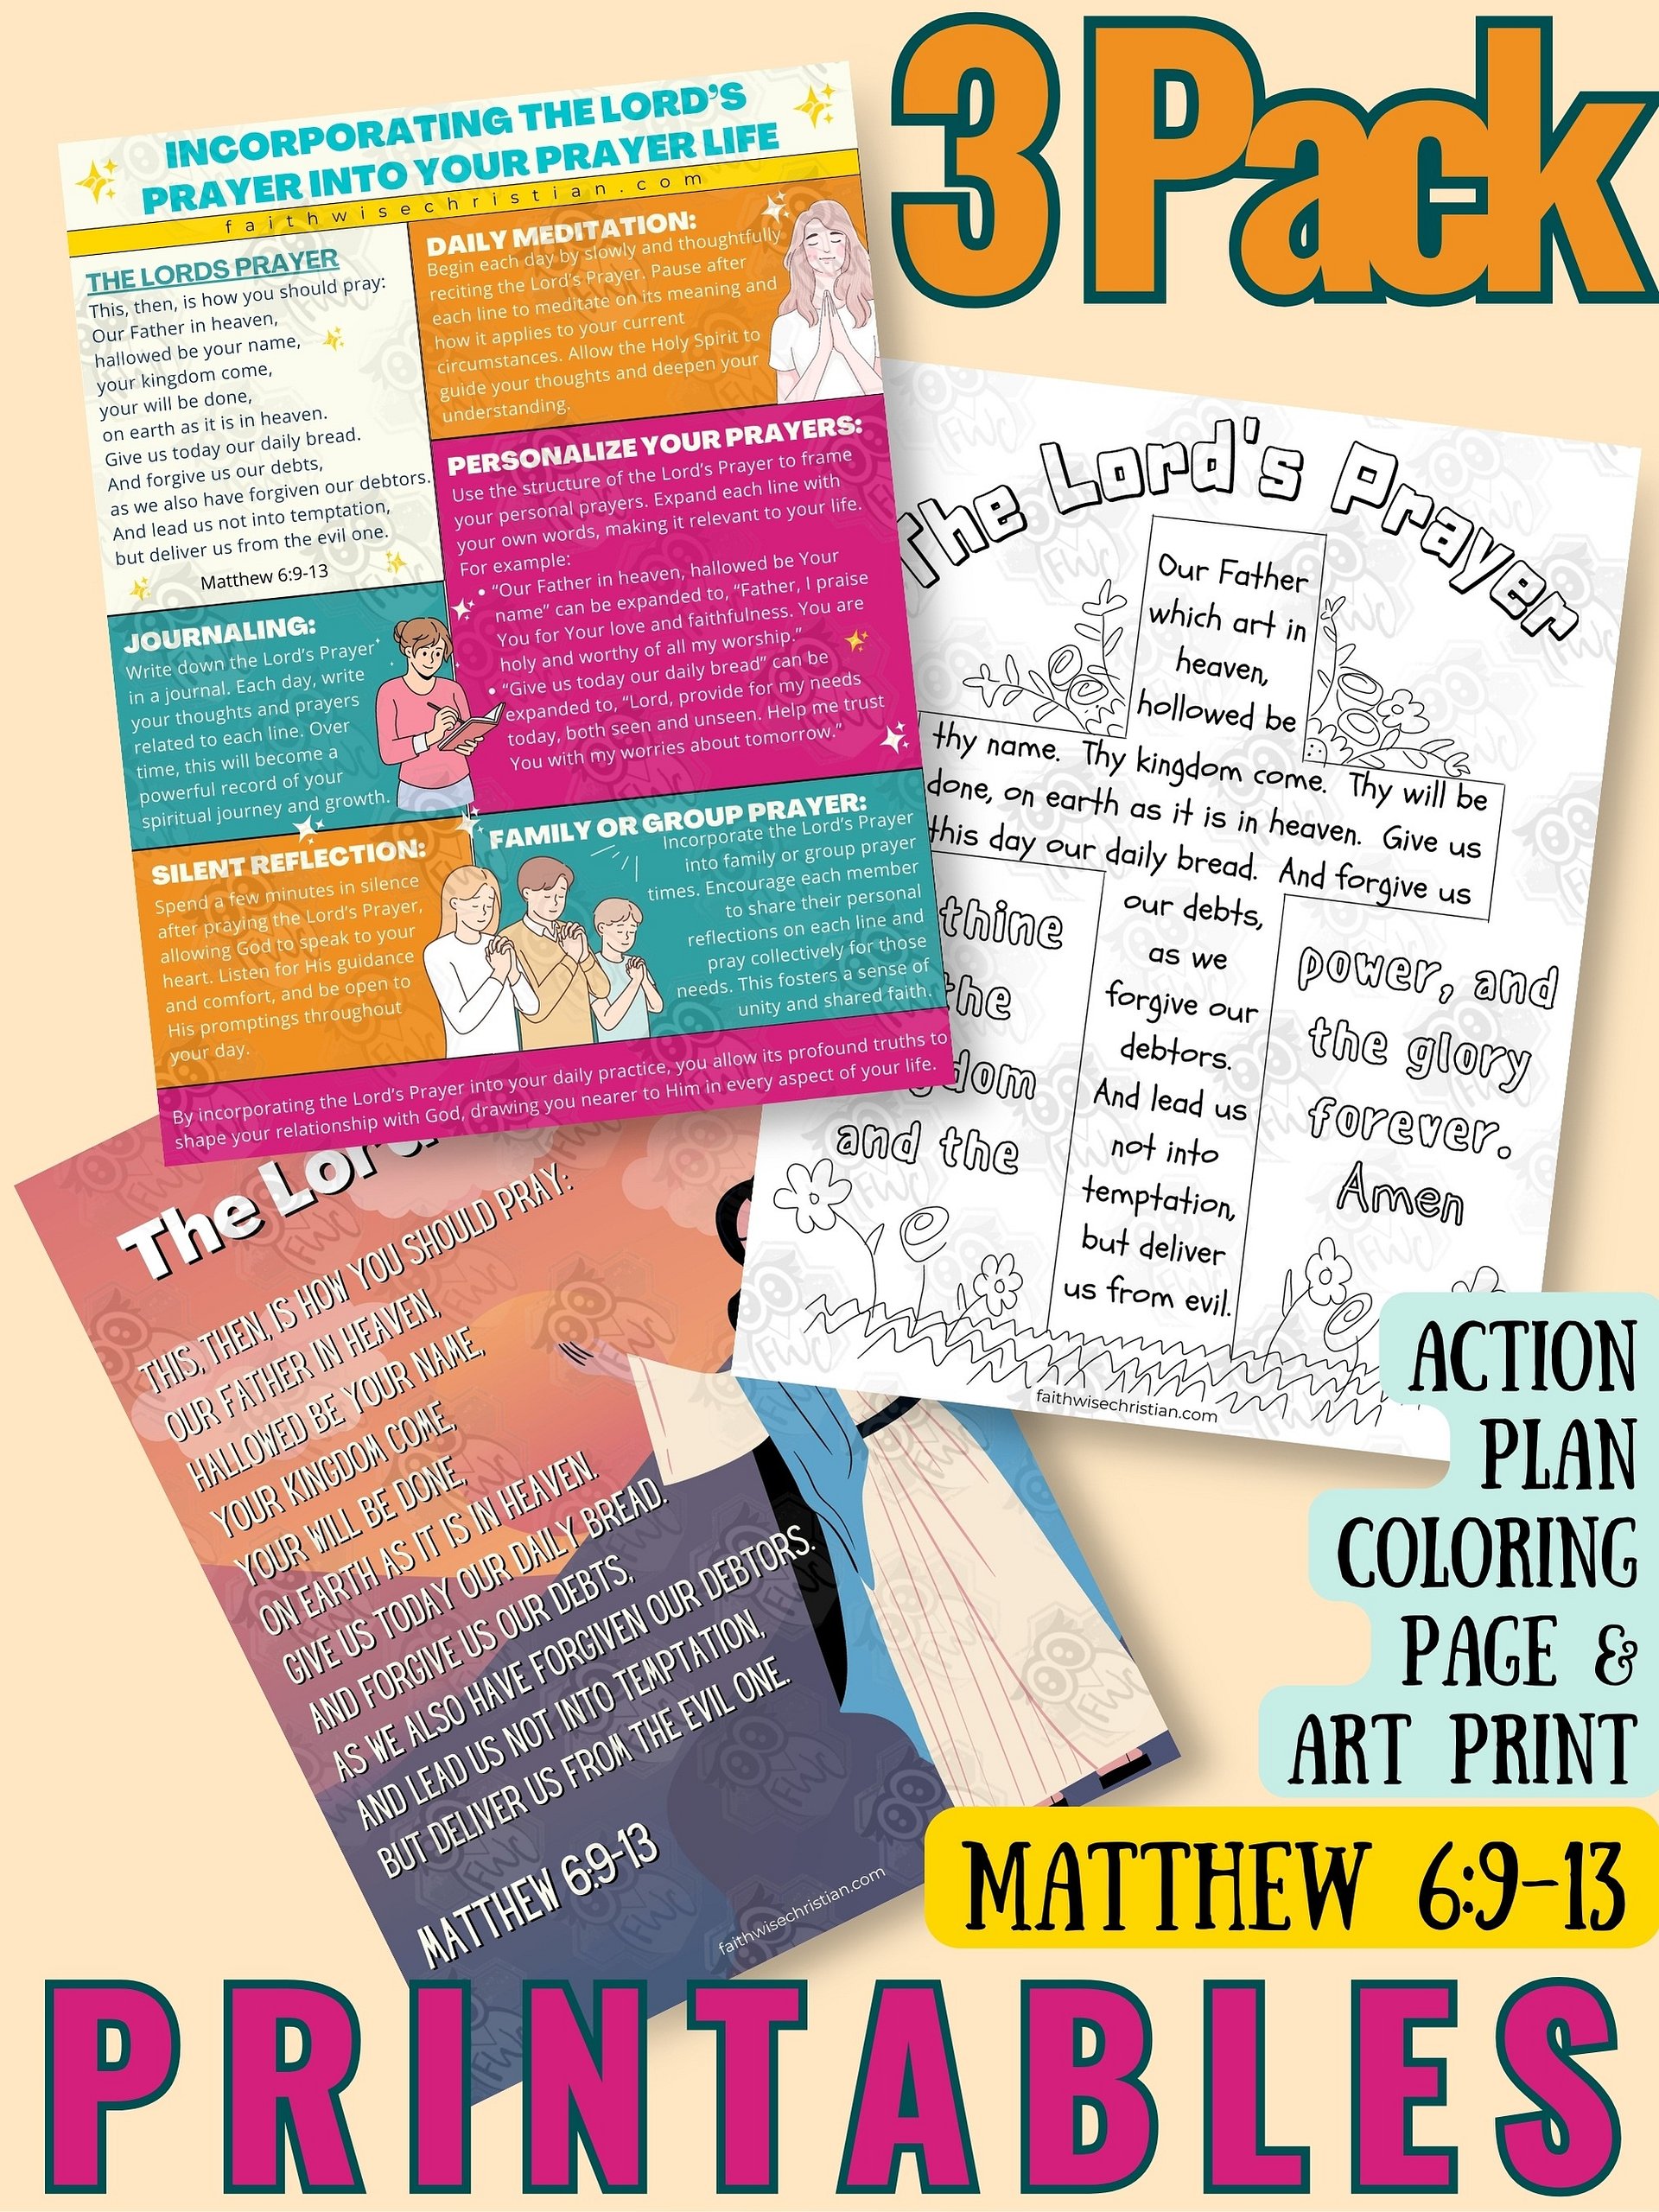 3 Pack
INCORPORATING THE LORD'S
PRAYER INTO YOUR PRAYER LIFE
faithwisechristian.com
THE LORDS PRAYER
This, then, is how you should pray:
Our Father in heaven,
hallowed be your name,
your kingdom come,
your will be done,
on earth as it is in heaven.
Give us today our daily bread.
And forgive us our debts,
as we also have forgiven our debtors.
And lead us not into temptation,
but deliver us from the evil one.
Matthew 6:9-13
DAILY MEDITATION:
Begin each day by slowly and thoughtfully
reciting the Lord's Prayer. Pause after
each line to meditate on its meaning and
how it applies to your current
circumstances. Allow the Holy Spirit to
guide your thoughts and deepen your
understanding.
PERSONALIZE YOUR PRAYERS:
Use the structure of the Lord's Prayer to frame
your personal prayers. Expand each line with
your own words, making it relevant to your life.
For example:
• "Our Father in heaven, hallowed be Your
name" can be expanded to, "Father, I praise
You for Your love and faithfulness. You are
holy and worthy of all my worship."
• "Give us today our daily bread" can be
expanded to, "Lord, provide for my needs
today, both seen and unseen. Help me trust
You with my worries about tomorrow."
JOURNALING:
Write down the Lord's Prayer
in a journal. Each day, write
your thoughts and prayers
related to each line. Over
time, this will become a
powerful record of your
spiritual journey and growth.
SILENT REFLECTION:
Spend a few minutes in silence
after praying the Lord's Prayer,
allowing God to speak to your
heart. Listen for His guidance
and comfort, and be open to
His promptings throughout
your day.
FAMILY OR GROUP PRAYER:
Incorporate the Lord's Prayer
into family or group prayer
times. Encourage each member
to share their personal
reflections on each line and
pray collectively for those
needs. This fosters a sense of
unity and shared faith.
By incorporating the Lord's Prayer into your daily practice, you allow its profound truths to
shape your relationship with God, drawing you nearer to Him in every aspect of your life.
The Lord's Prayer
Our Father
which art in
heaven,
hollowed be
thy name. Thy kingdom come. Thy will be
done, on earth as it is in heaven. Give us
this day our daily bread. And forgive us
our debts,
as we
forgive our
debtors.
And lead us
not into
temptation,
but deliver
us from evil.
thine
the
and the
power, and
the glory
forever.
Amen
faithwisechristian.com
The
THIS, THEN, IS HOW YOU SHOULD PRAY:
OUR FATHER IN HEAVEN,
HALLOWED BE YOUR NAME,
YOUR KINGDOM COME,
YOUR WILL BE DONE,
ON EARTH AS IT IS IN HEAVEN.
GIVE US TODAY OUR DAILY BREAD.
AND FORGIVE US OUR DEBTS,
AS WE ALSO HAVE FORGIVEN OUR DEBTORS.
AND LEAD US NOT INTO TEMPTATION,
BUT DELIVER US FROM THE EVIL ONE.
MATTHEW 6:9-13
faithwisechristian.com
ACTION
PLAN
COLORING
PAGE &
ART PRINT
MATTHEW 6:9-13
PRINTABLES